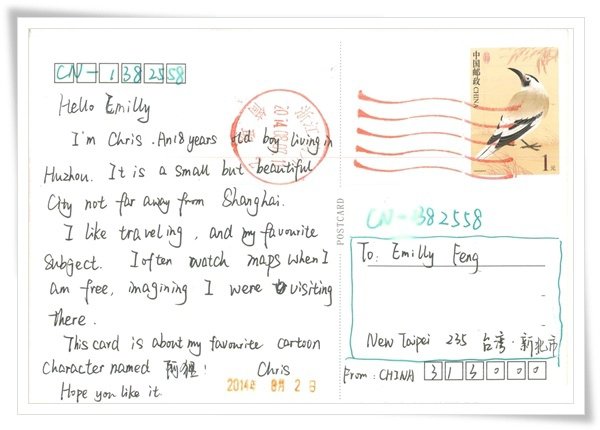 CN-1382558
Hello Emilly
I'm Chris. An 18 years old boy living in
Huzhou. It is a small but beautiful
City not far away from Shanghai.
I like traveling, and my favourite
Subject. I often watch maps when I
am free, imagining I were visiting
there.
This card is about my favourite cartoon
Character named 阿狸!
Chris
Hope you like it.
2014年 8月 2日
浙江
中国邮政
CHINA
1元
POSTCARD
CN-1382558
To: Emilly Feng
New Taipei 235 台湾·新北市
From: CHINA 313000